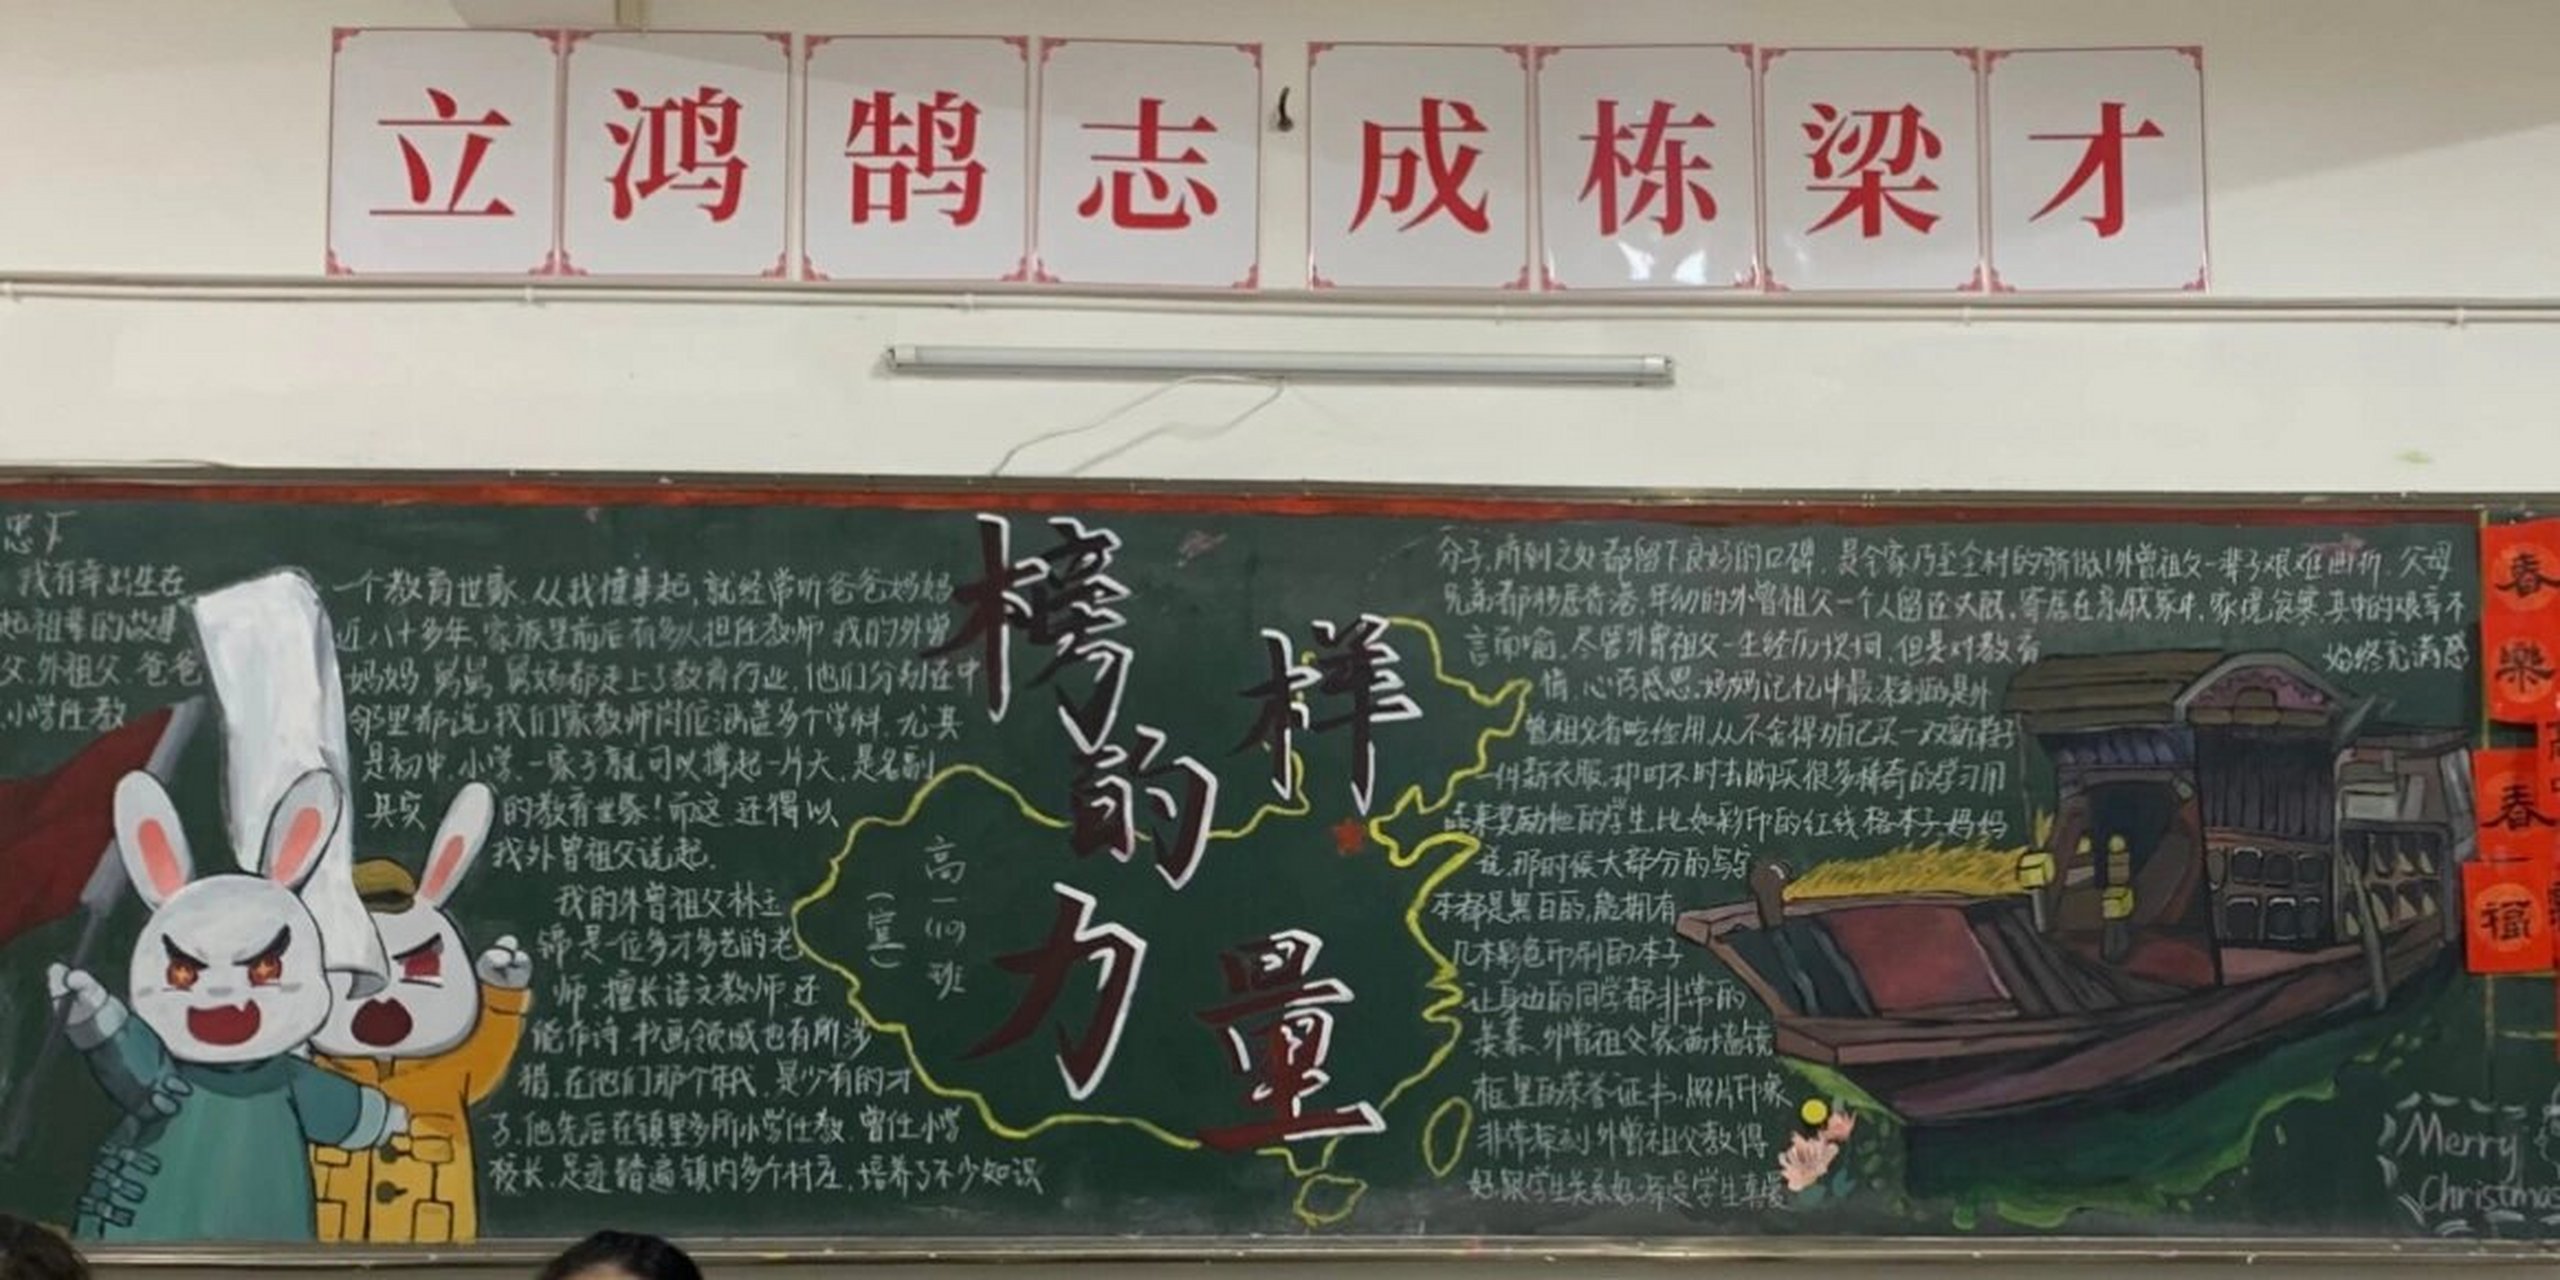 立鸿鹄志 成栋梁才
榜样的力量
高一(10)班
(宣)
我有幸出生在一个教育世家.从我懂事起,就经常听爸爸妈妈
起祖辈的故事 近八十多年,家族里前后有多人担任教师 我的外曾
父.外祖父.爸爸 妈妈.舅舅.舅妈都走上了教育行业,他们分别在中
小学任教 邻里都说我们家教师岗位涵盖多个学科.尤其
是初中.小学.一家子就可以撑起一片天,是名副
其实的教育世家!而这还得以
我外曾祖父说起.
我的外曾祖父林玉
锦是一位多才多艺的老
师.擅长语文教师 还
能作诗.书画领域也有所涉
猎.在他们那个年代.是少有的才
子.他先后在镇里多所小学任教.曾任小学
校长.足迹踏遍镇内多个村庄,培养了不少知识
分子.所到之处都留下良好的口碑.是全家乃至全村的骄傲!外曾祖父一辈子艰难曲折.父母
兄弟都移居香港.年幼的外曾祖父一个人留在,寄居在亲戚家中.家境贫寒.其中的艰辛不
言而喻.尽管外曾祖父一生经历坎坷.但是对教育 始终充满感
情.心存感恩.妈妈记忆中最深刻的是外
曾祖父省吃俭用.从不舍得为自己买一双新鞋子
一件新衣服.却时不时去购买很多稀奇的学习用
品来奖励他的学生.比如彩印的红线格本子.妈妈
说.那时候大部分的写字
本都是黑白的,能拥有
几本彩色印刷的本子
让身边的同学都非常的
羡慕.外曾祖父家满墙镜
框里的荣誉证书.照片印象
非常深刻.外曾祖父教得
好.跟学生关系好.深受学生喜爱
春
樂
春
Merry
Christmas